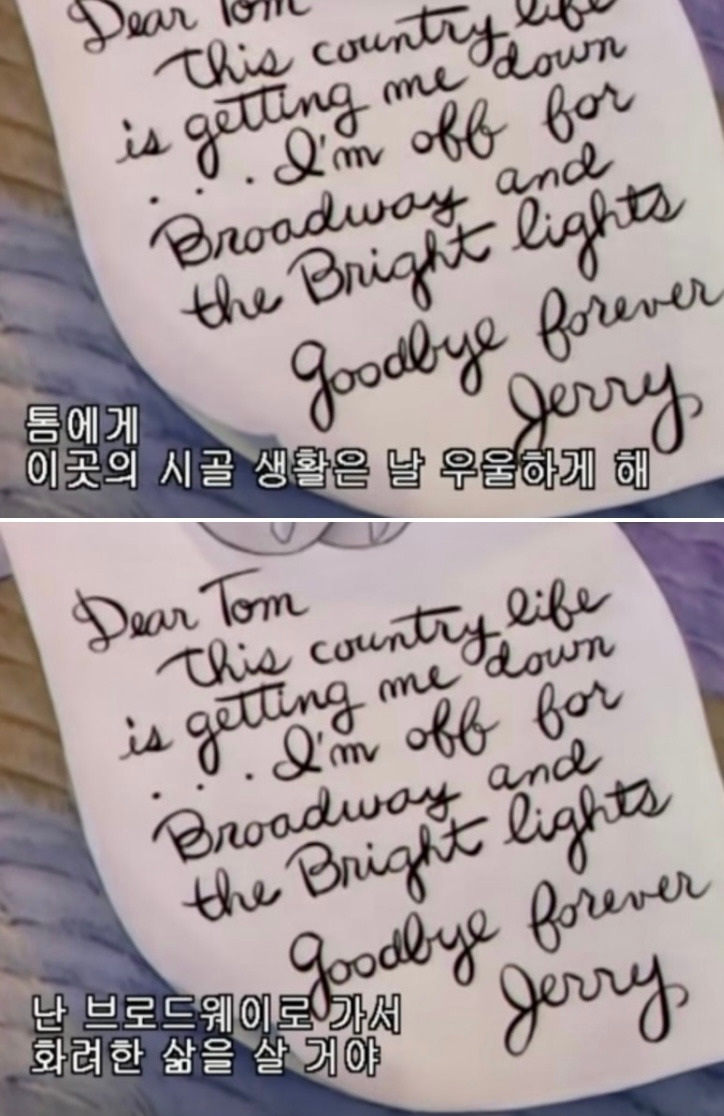 Dear Tom
This country life
is getting me down
. . . I'm off for
Broadway and
the Bright lights
Goodbye forever
Jerry
톰에게
이곳의 시골 생활은 날 우울하게 해
Dear Tom
This country life
is getting me down
. . . I'm off for
Broadway and
the Bright lights
Goodbye forever
Jerry
난 브로드웨이로 가서
화려한 삶을 살 거야